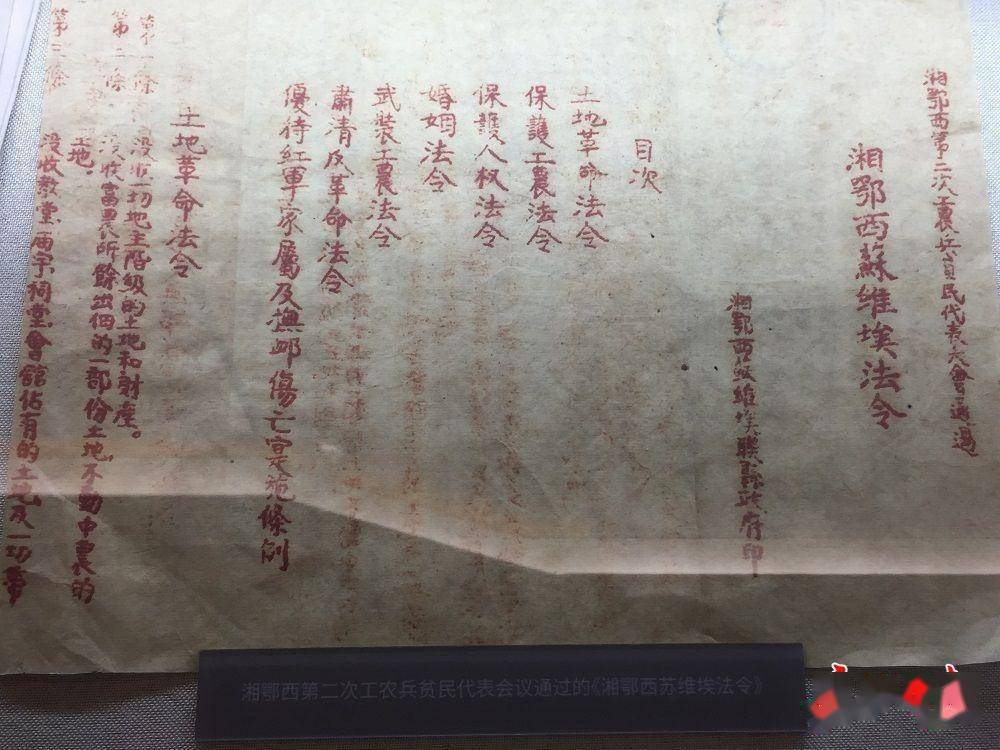 湘鄂西第二次工農兵貧民代表大會通過
湘鄂西蘇维埃法令
湘鄂西苏維埃聯縣政府印
目次
土地革命法令
保護工農法令
保護人权法令
婚姻法令
武裝工農法令
肅清反革命法令
優待紅軍家屬及撫邺傷亡实施條例
土地革命法令
第一條 没收一切地主階級的土地和財產。
第二條 没收富農所餘出佃的一部份土地，不動中農的
土地。
第三條 没收教堂庙宇祠堂會館佔有的土地及一切
湘鄂西第二次工农兵贫民代表会议通过的《湘鄂西苏维埃法令》